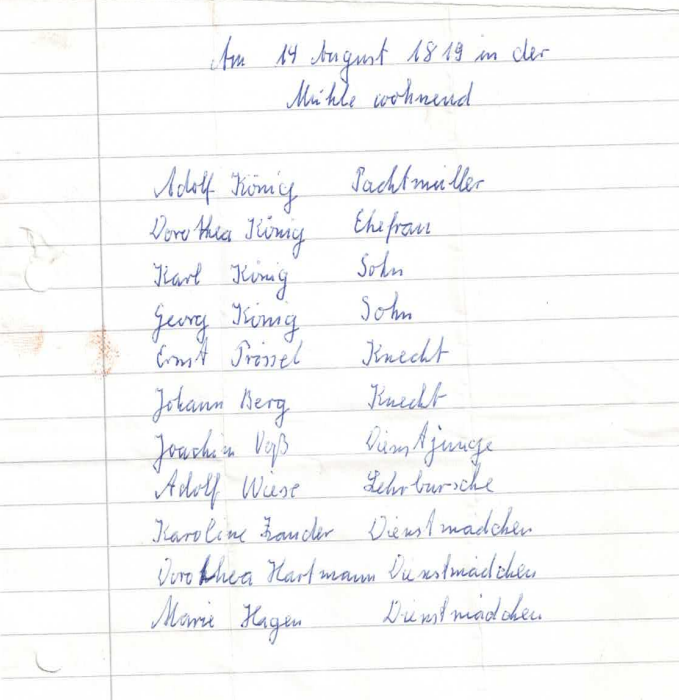 Am 14 August 1819 in der
Mühle wohnend
Adolf König Pachtmüller
Dorothea König Ehefrau
Karl König Sohn
Georg König Sohn
Ernst Prössel Knecht
Johann Berg Knecht
Joachim Voß Dienstjunge
Adolf Wiese Lehrbursche
Karoline Zander Dienstmädchen
Dorothea Hartmann Dienstmädchen
Marie Hagen Dienstmädchen